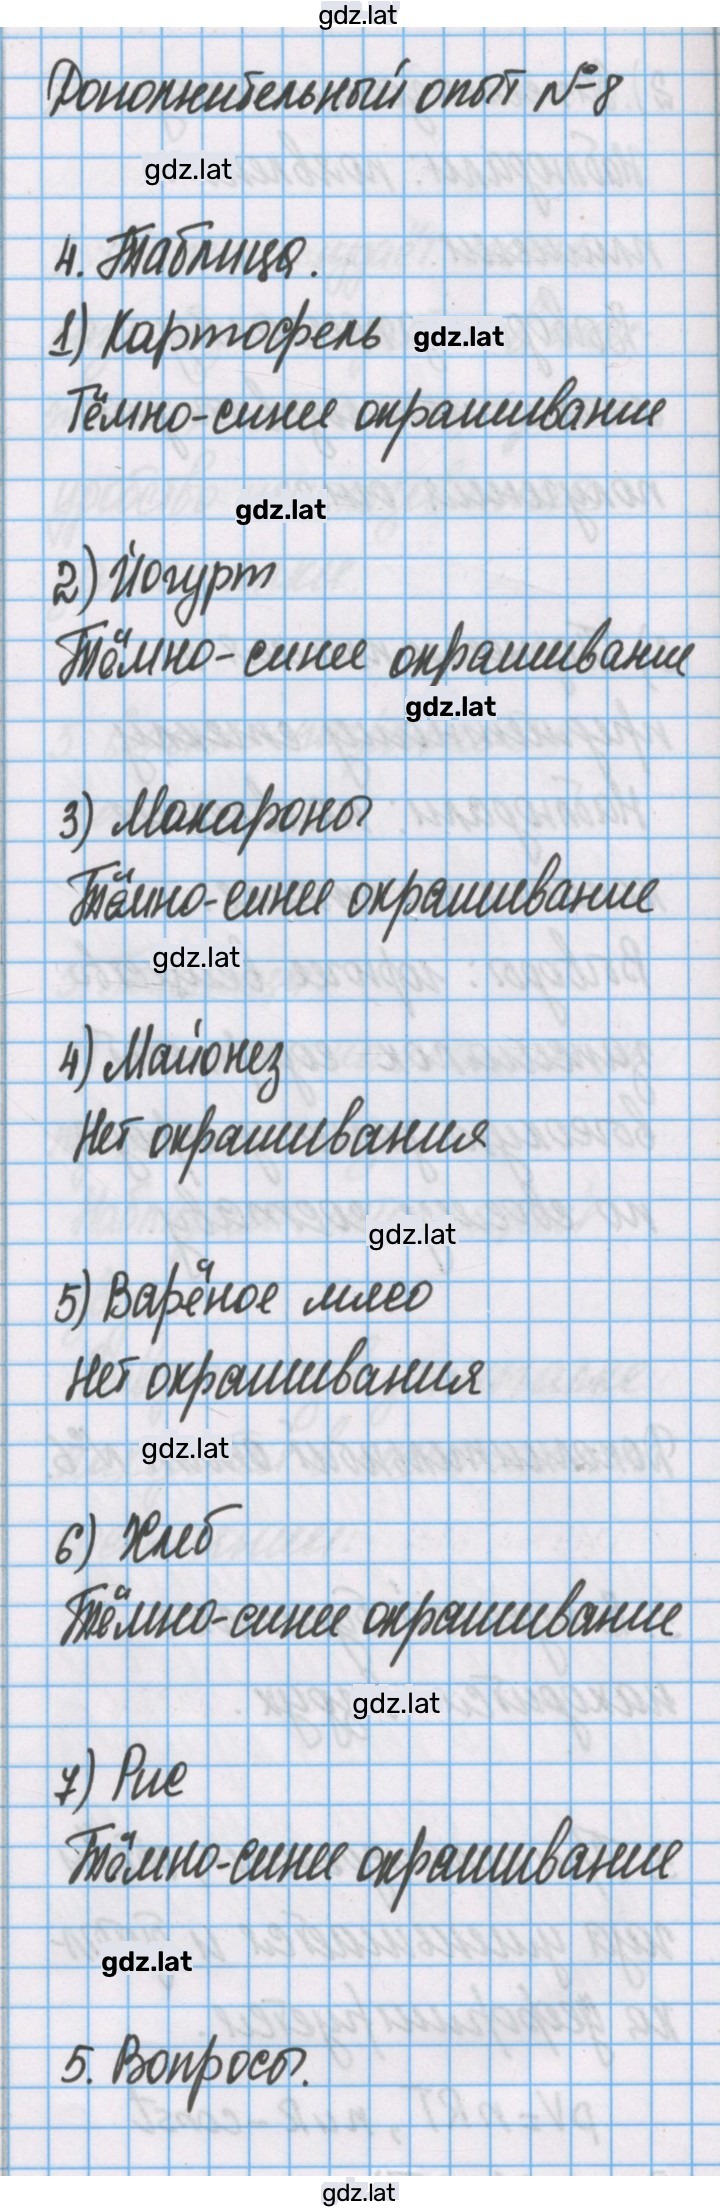 gdz.lat
Дополнительный опыт №8
gdz.lat
4. Таблица.
1) Картофель gdz.lat
Тёмно-синее окрашивание
gdz.lat
2) Йогурт
Тёмно-синее окрашивание
gdz.lat
3) Макароны
Тёмно-синее окрашивание
gdz.lat
4) Майонез
Нет окрашивания
gdz.lat
5) Варёное мясо
Нет окрашивания
gdz.lat
6) Хлеб
Тёмно-синее окрашивание
gdz.lat
7) Рис
Тёмно-синее окрашивание
gdz.lat
5. Вопросы.
gdz.lat